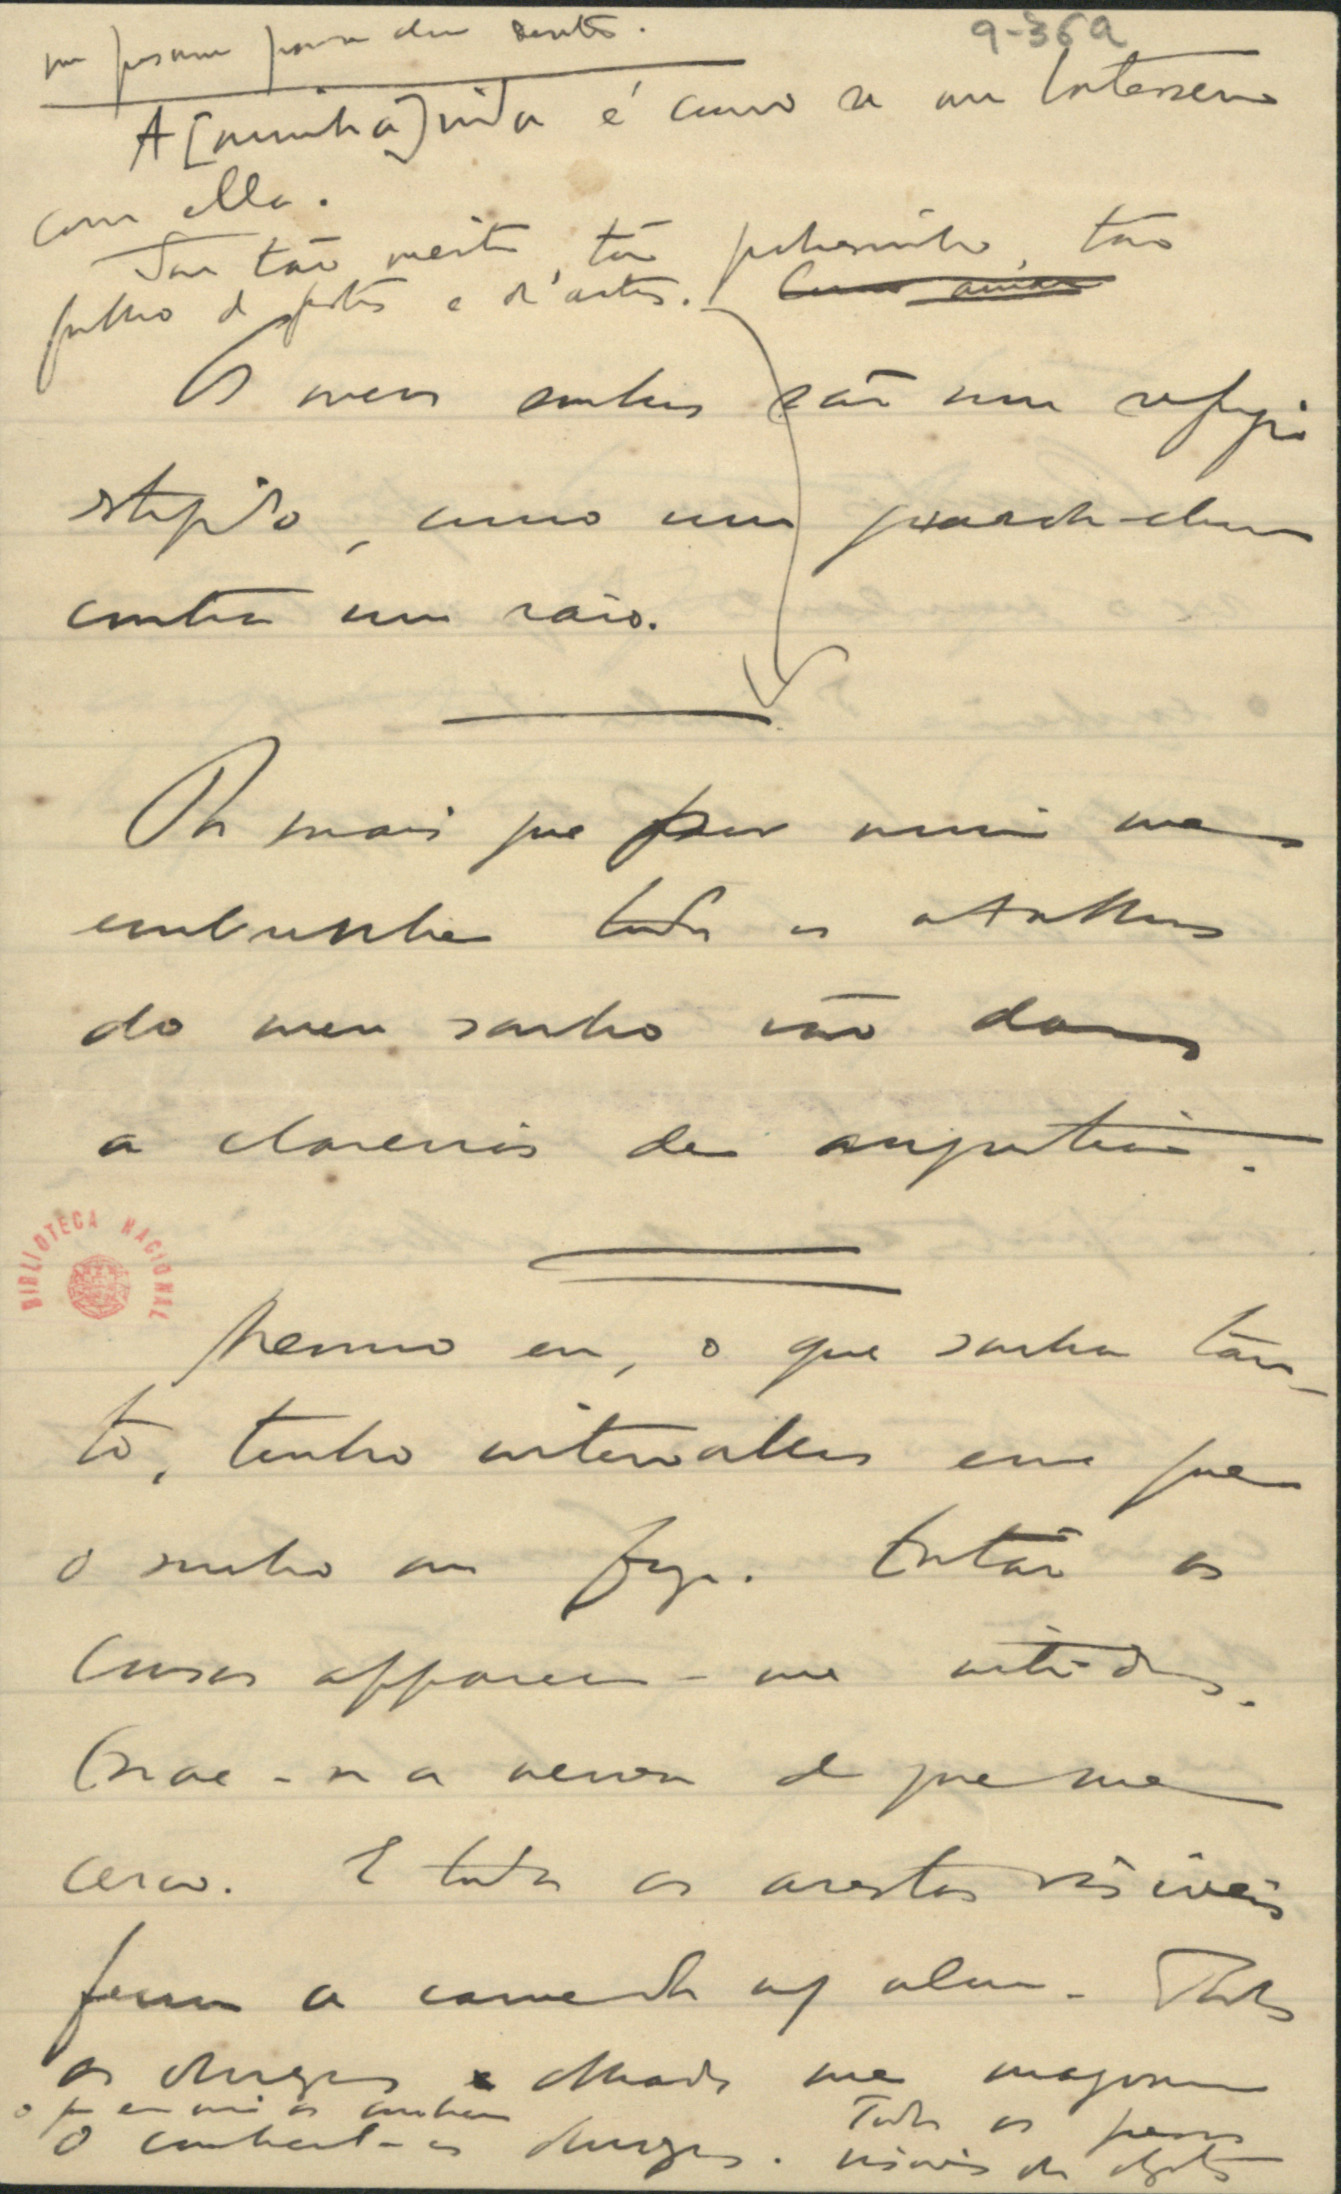 me pesam por dentro.
9-36a
A [minha] vida é como se me batessem
com ella.
Sou tão inerte, tão pobresinho, tão
falho de gestos e d'actos.
Os meus sonhos são um refugio
estupido, como um guarda-chuva
contra um raio.
Por mais que por mim me
embrenhe todos os atalhos
do meu sonho vão dar
a clareiras de angustia.
Mesmo eu, o que sonha tan-
to, tenho intervallos em que
o sonho me foge. Então as
cousas apparecem-me nitidas.
Esvae-se a nevoa de que me
cerco. E todas as arestas visiveis
ferem a carne da m/ alma. Todas
as durezas olhadas me magoam
o conhecel-as durezas. Todos os pesos
visiveis de objectos
BIBLIOTECA NACIONAL